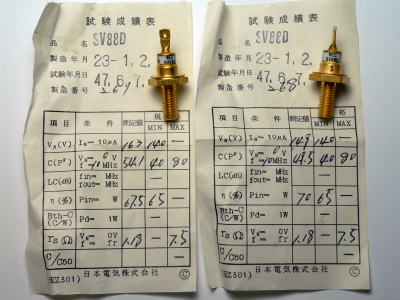 試験成績表
品名 SV88D
製造年月 23-1,2,
試験年月日 47,6,7,
製造番号
項目 条件 測定値 規格
MIN MAX
VR(V) IR=10μA 163 140 —
C(PF) VR=0V f=10MHz 54.1 40 80
LC(dB) fin= MHz fout= MHz
η(%) Pin= W 67.5 65 —
Rth-C (C/W) Pd= 1W
rs(Ω) VR=0V f= fr 1.18 — 7.5
C/C50
EZ301) 日本電気株式会社 Ⓒ
試験成績表
品名 SV88D
製造年月 23-1,2,
試験年月日 47,6,7,
製造番号 268
項目 条件 測定値 規格
MIN MAX
VR(V) IR=10μA 149 140 —
C(PF) VR=0V f=10MHz 40 80
LC(dB) fin= MHz fout= MHz
η(%) Pin= W 70 65 —
Rth-C (C/W) Pd= 1W
rs(Ω) VR=0V f= fr 1.18 — 7.5
C/C50
EZ301) 日本電気株式会社 Ⓒ